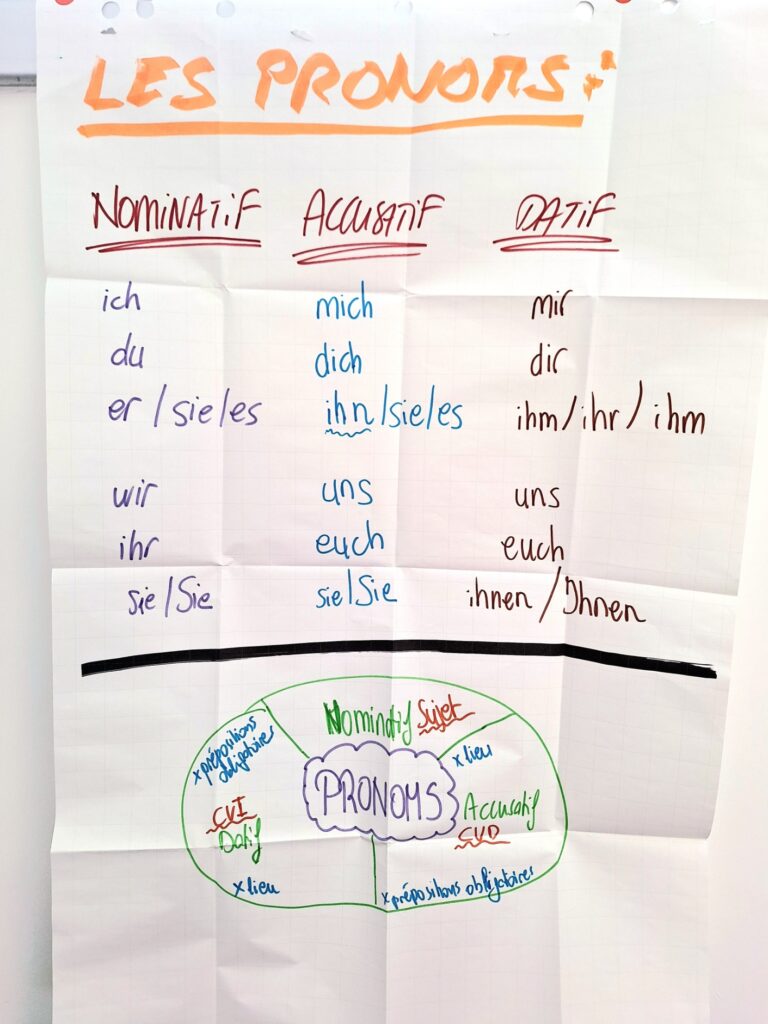 LES PRONOMS:
NOMINATIF ACCUSATIF DATIF
ich mich mir
du dich dir
er/sie/es ihn/sie/es ihm/ihr/ihm
wir uns uns
ihr euch euch
sie/Sie sie/Sie ihnen/Ihnen
Nominatif Sujet
x prépositions
obligatoires
x lieu
PRONOMS
CVI
Datif
Accusatif
CVD
x lieu
x prépositions obligatoires